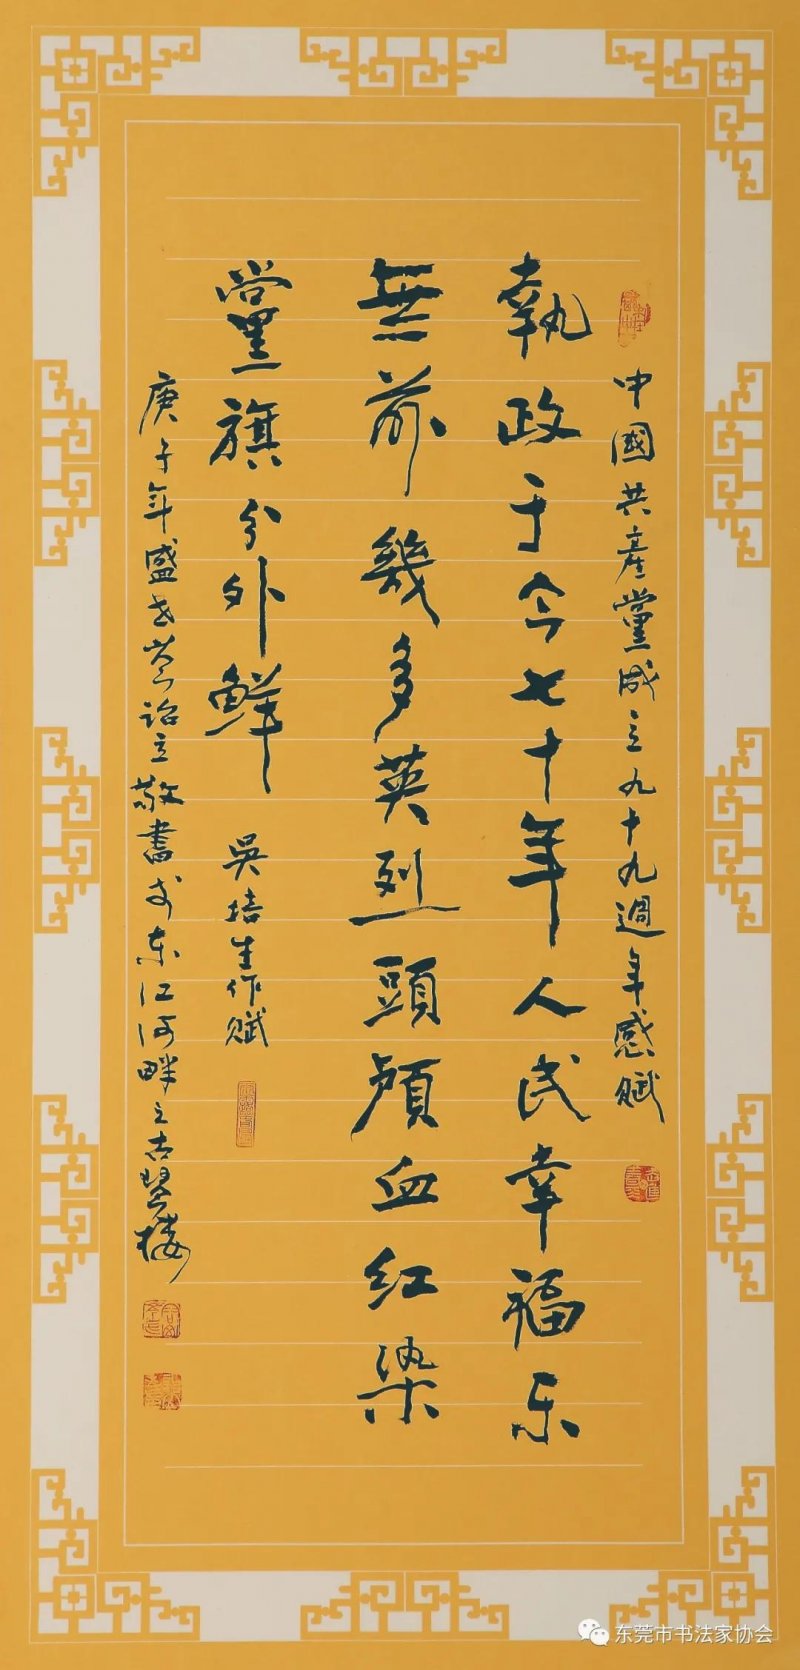 中國共產黨成立九十九週年感賦
執政于今七十年人民幸福乐
無前幾多英烈頭顱血红染
黨旗分外鮮
吳培生作賦
庚子年盛世黃詒立敬書於东江河畔之古琴楼
东莞市书法家协会